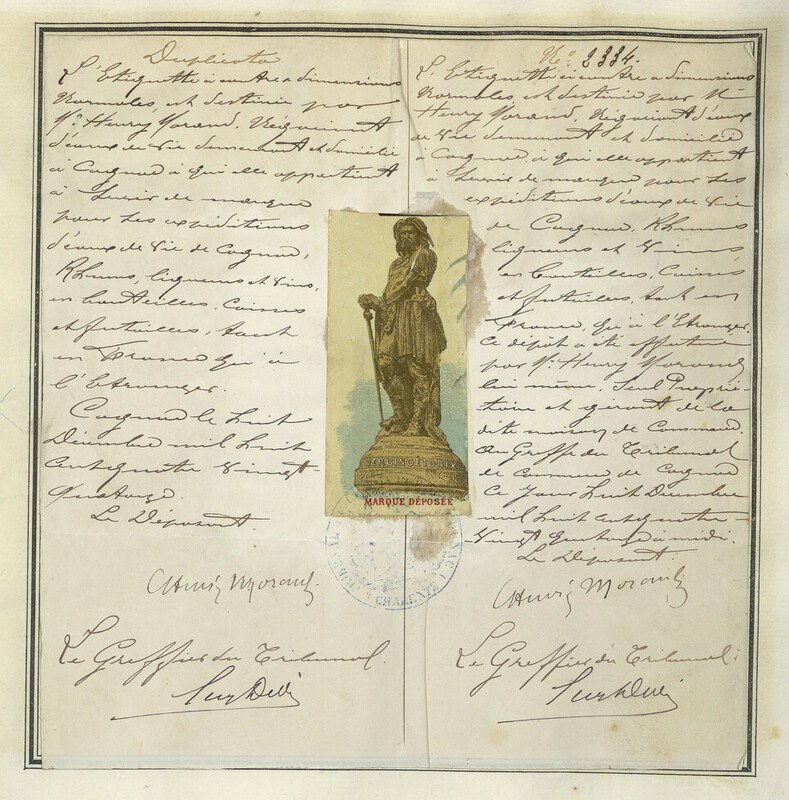 Duplicata
L'Etiquette ci contre a dimensions
Normales, est destinée par
Mr. Henry Morand, Négociant
d'eaux de vie demeurant et domicilié
à Cognac à qui elle appartient
à Servir de marque
pour Ses expéditions
d'eaux de Vie de Cognac,
Rhums, liqueurs et Vins,
en bouteilles, Caisses
et futailles, tant
en France qu'à
l'Etranger.
Cognac le huit
Décembre mil huit
cent quatre Vingt
Quatorze.
Le Déposant.
Henry Morand
Le Greffier du Tribunal.
VERCINGÉTORIX
MARQUE DÉPOSÉE
CHARENTE
No. 2334.
L'Etiquette ci contre a dimensions
Normales, est destinée par Mr
Henry Morand, Négociant d'eaux
de Vie demeurant et domicilié
à Cognac, à qui elle appartient
à Servir de marque pour Ses
expéditions d'eaux de Vie
de Cognac, Rhums
liqueurs et Vins
en bouteilles, Caisses
et futailles, tant en
France, qu'à l'Etranger.
Ce dépôt a été effectué
par Mr. Henry Morand
lui même, Seul Proprié-
taire et gérant de la
dite maison de Commerce.
Au Greffe du Tribunal
de Commerce de Cognac
Ce Jour huit Décembre
mil huit cent quatre-
Vingt Quatorze à midi.
Le Déposant.
Henry Morand
Le Greffier du Tribunal: